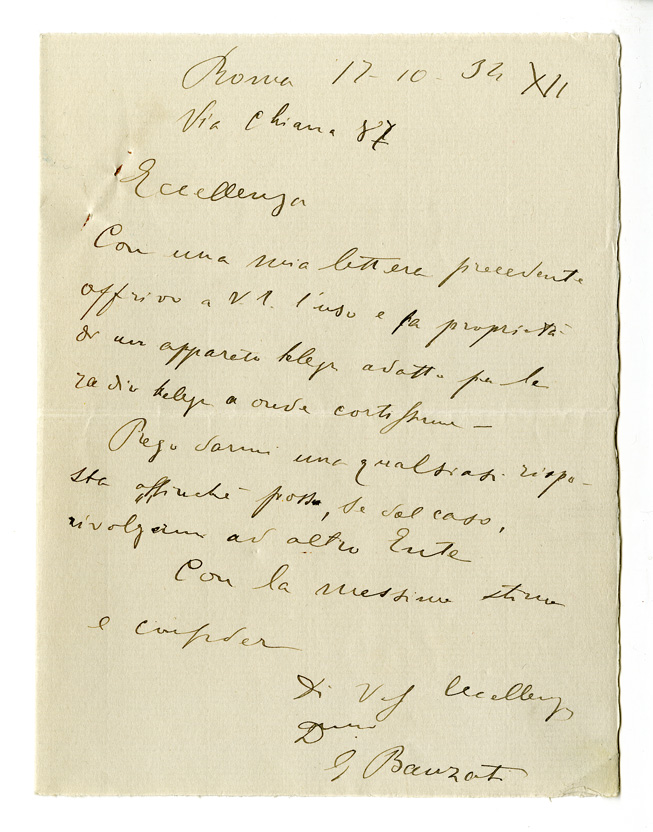 Roma 17-10-34 XII
Via Chiana 87
Eccellenza
Con una mia lettera precedente
offrivo a V.E. l'uso e la proprietà
di un apparato telegr adatto per le
radio telegr a onde cortissime —
Prego darmi una qualsiasi rispo-
sta affinchè possa, se del caso,
rivolgermi ad altro Ente
Con la massima stima
e consider
Di Vos Eccellenza
D
G Banzati